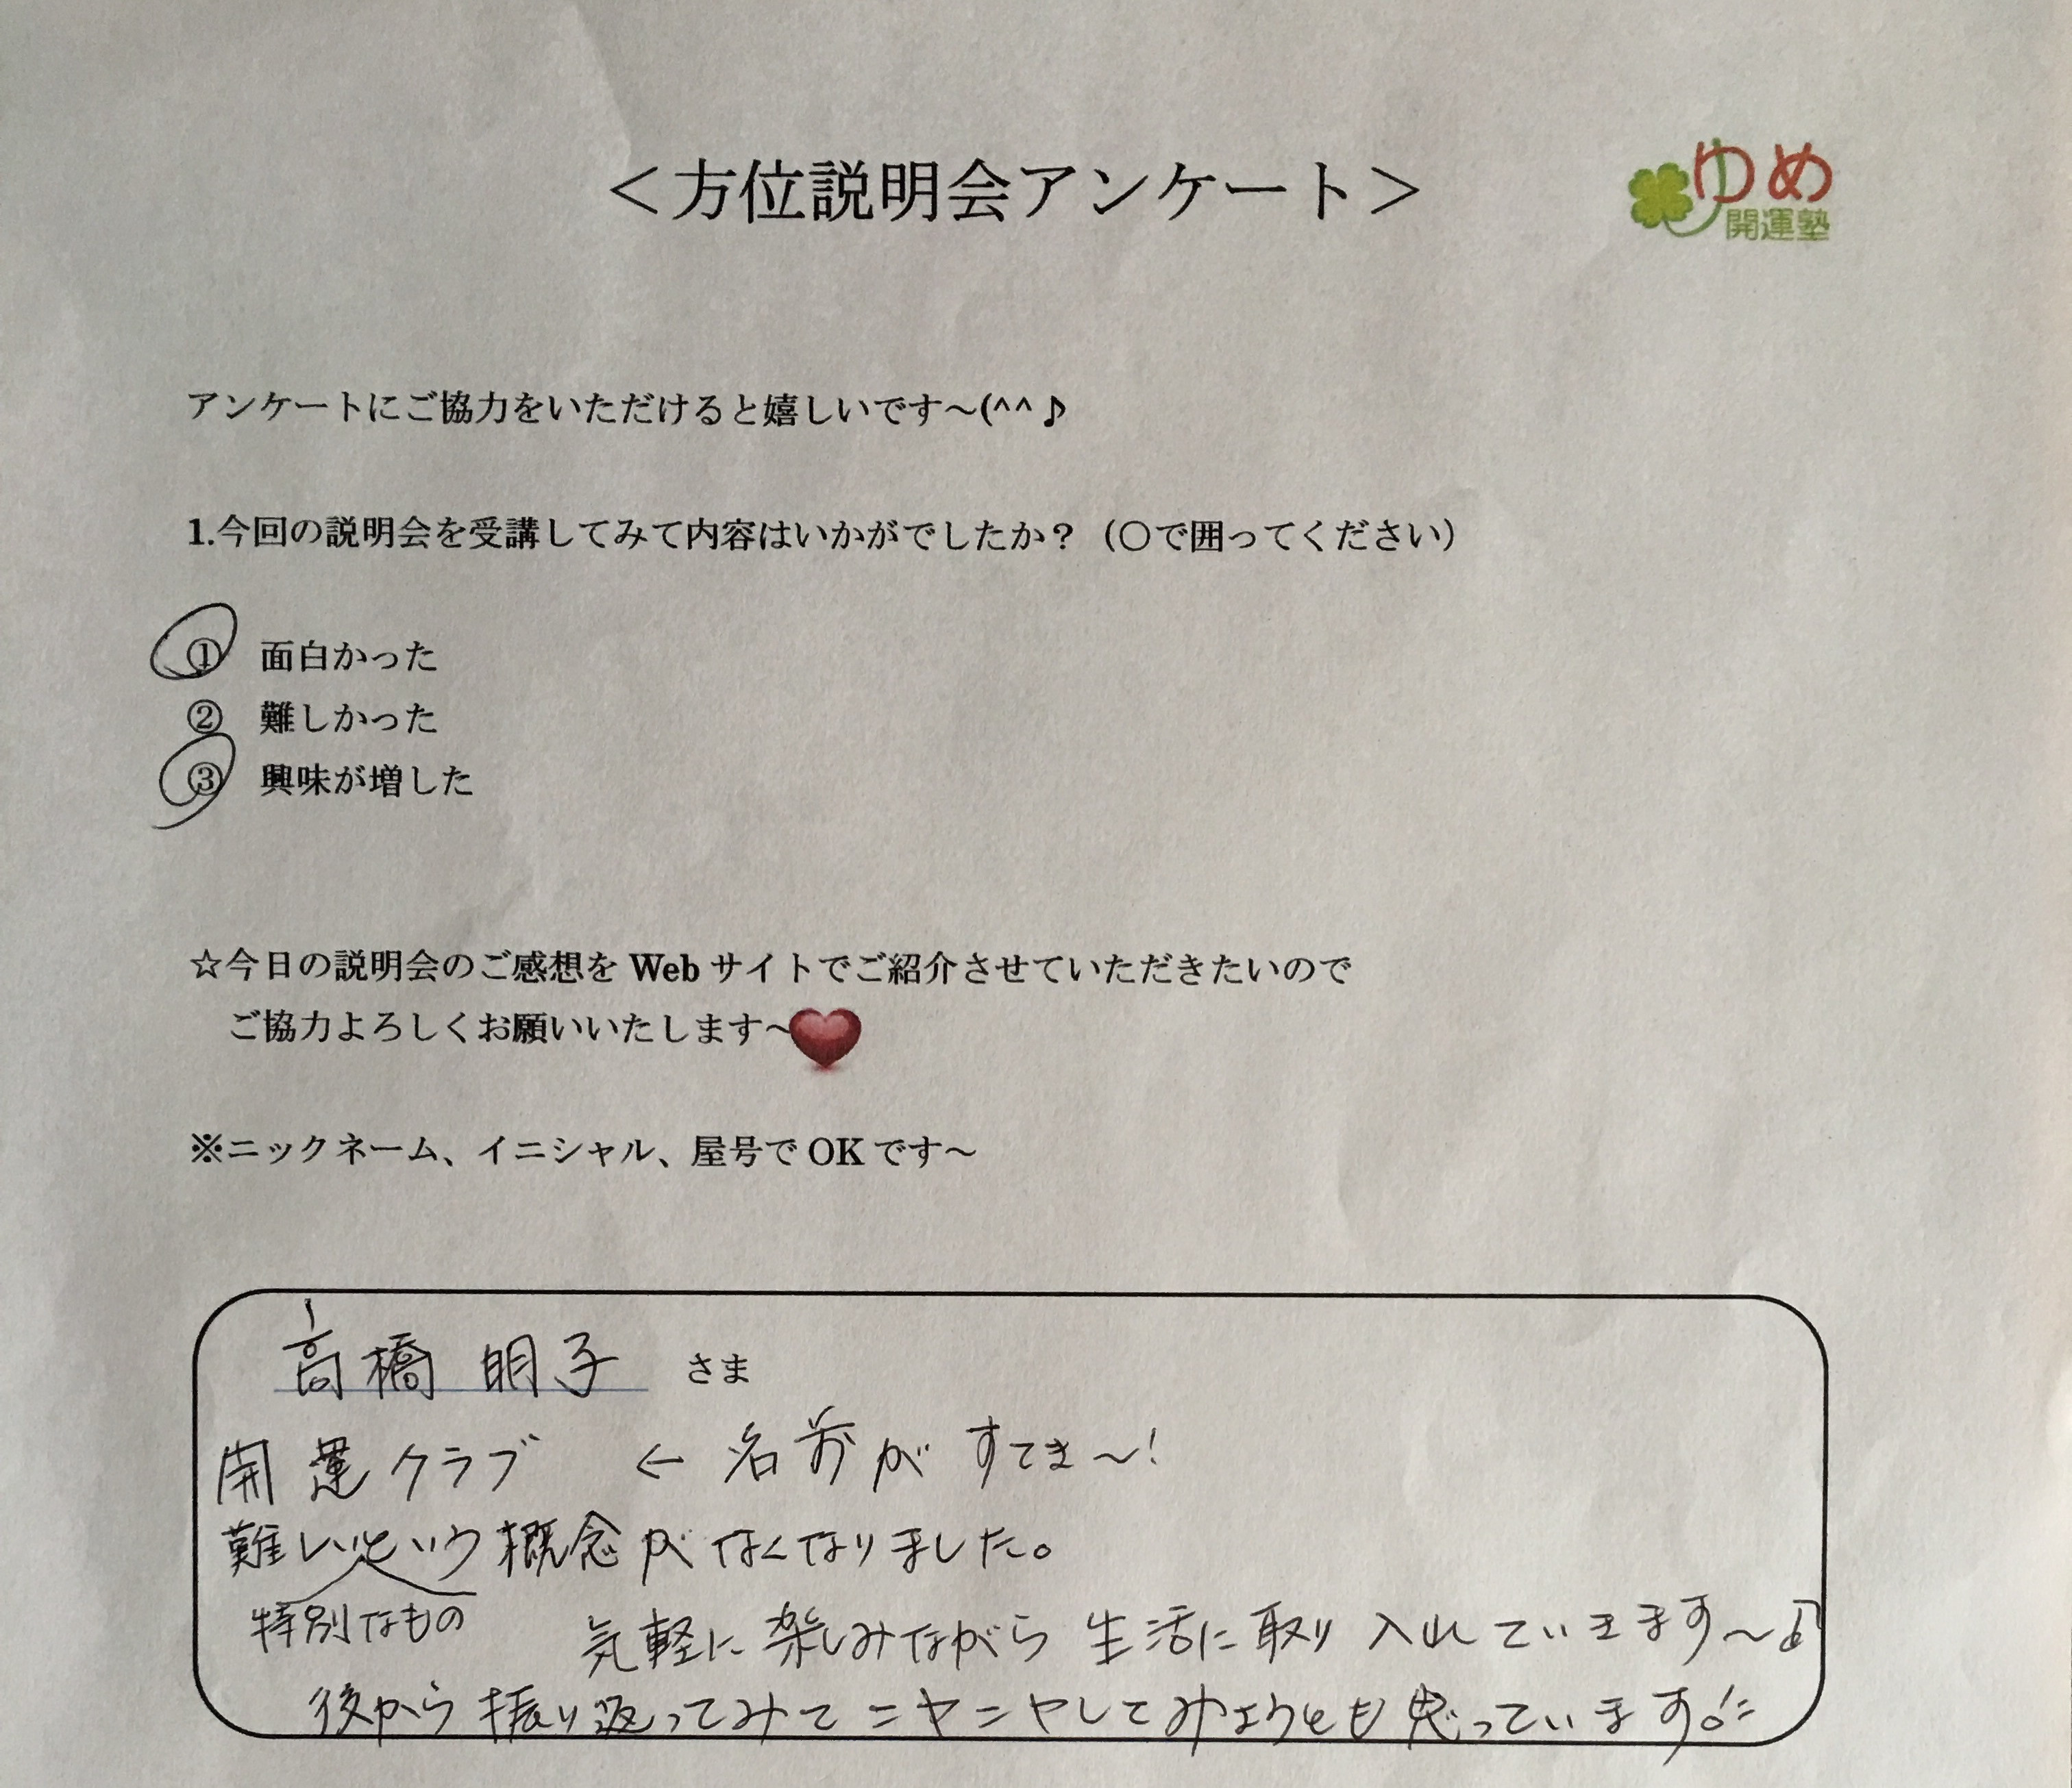 ＜方位説明会アンケート＞
ゆめ
開運塾
アンケートにご協力をいただけると嬉しいです～(^^♪
1.今回の説明会を受講してみて内容はいかがでしたか？（〇で囲ってください）
① 面白かった
② 難しかった
③ 興味が増した
☆今日の説明会のご感想を Web サイトでご紹介させていただきたいので
ご協力よろしくお願いいたします～
※ニックネーム、イニシャル、屋号で OK です～
高橋 明子 さま
開運クラブ ← 名前がすてき～!
難しいという概念がなくなりました。
特別なもの
気軽に楽しみながら生活に取り入れていきます～♪
後から振り返ってみてニヤニヤしてみようとも思っています!